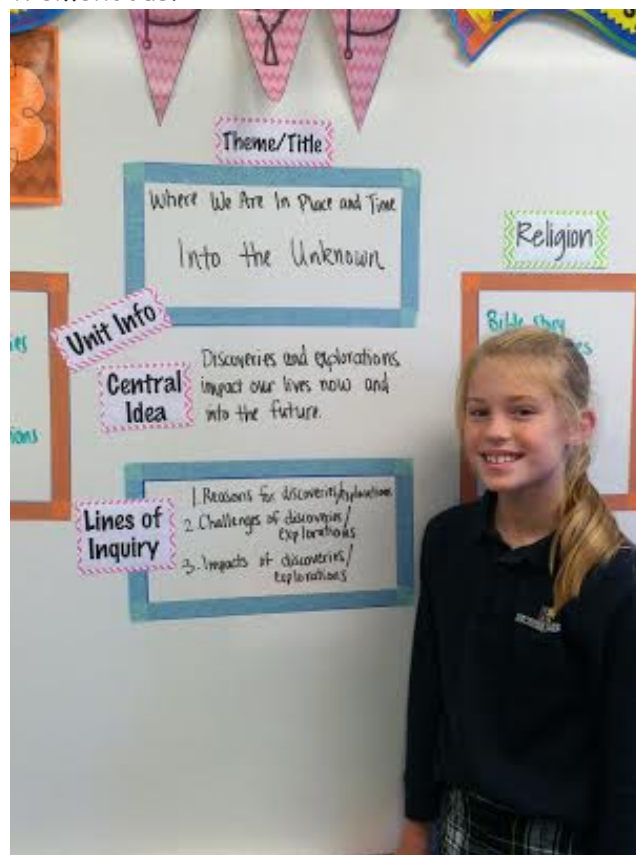 PYP
Theme/Title
Where We Are In Place and Time
Into the Unknown
Religion
Bible Story
Unit Info
Central
Idea
Discoveries and explorations
impact our lives now and
into the future.
Lines of
Inquiry
1. Reasons for discoveries/explorations
2. Challenges of discoveries/
explorations
3. Impacts of discoveries/
explorations